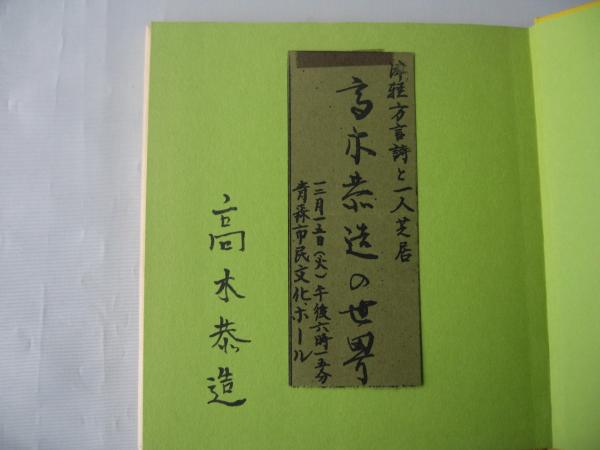 津軽方言詩と一人芝居
高木恭造の世界
一二月一五日(火)午後六時一五分
青森市民文化ホール
高木恭造